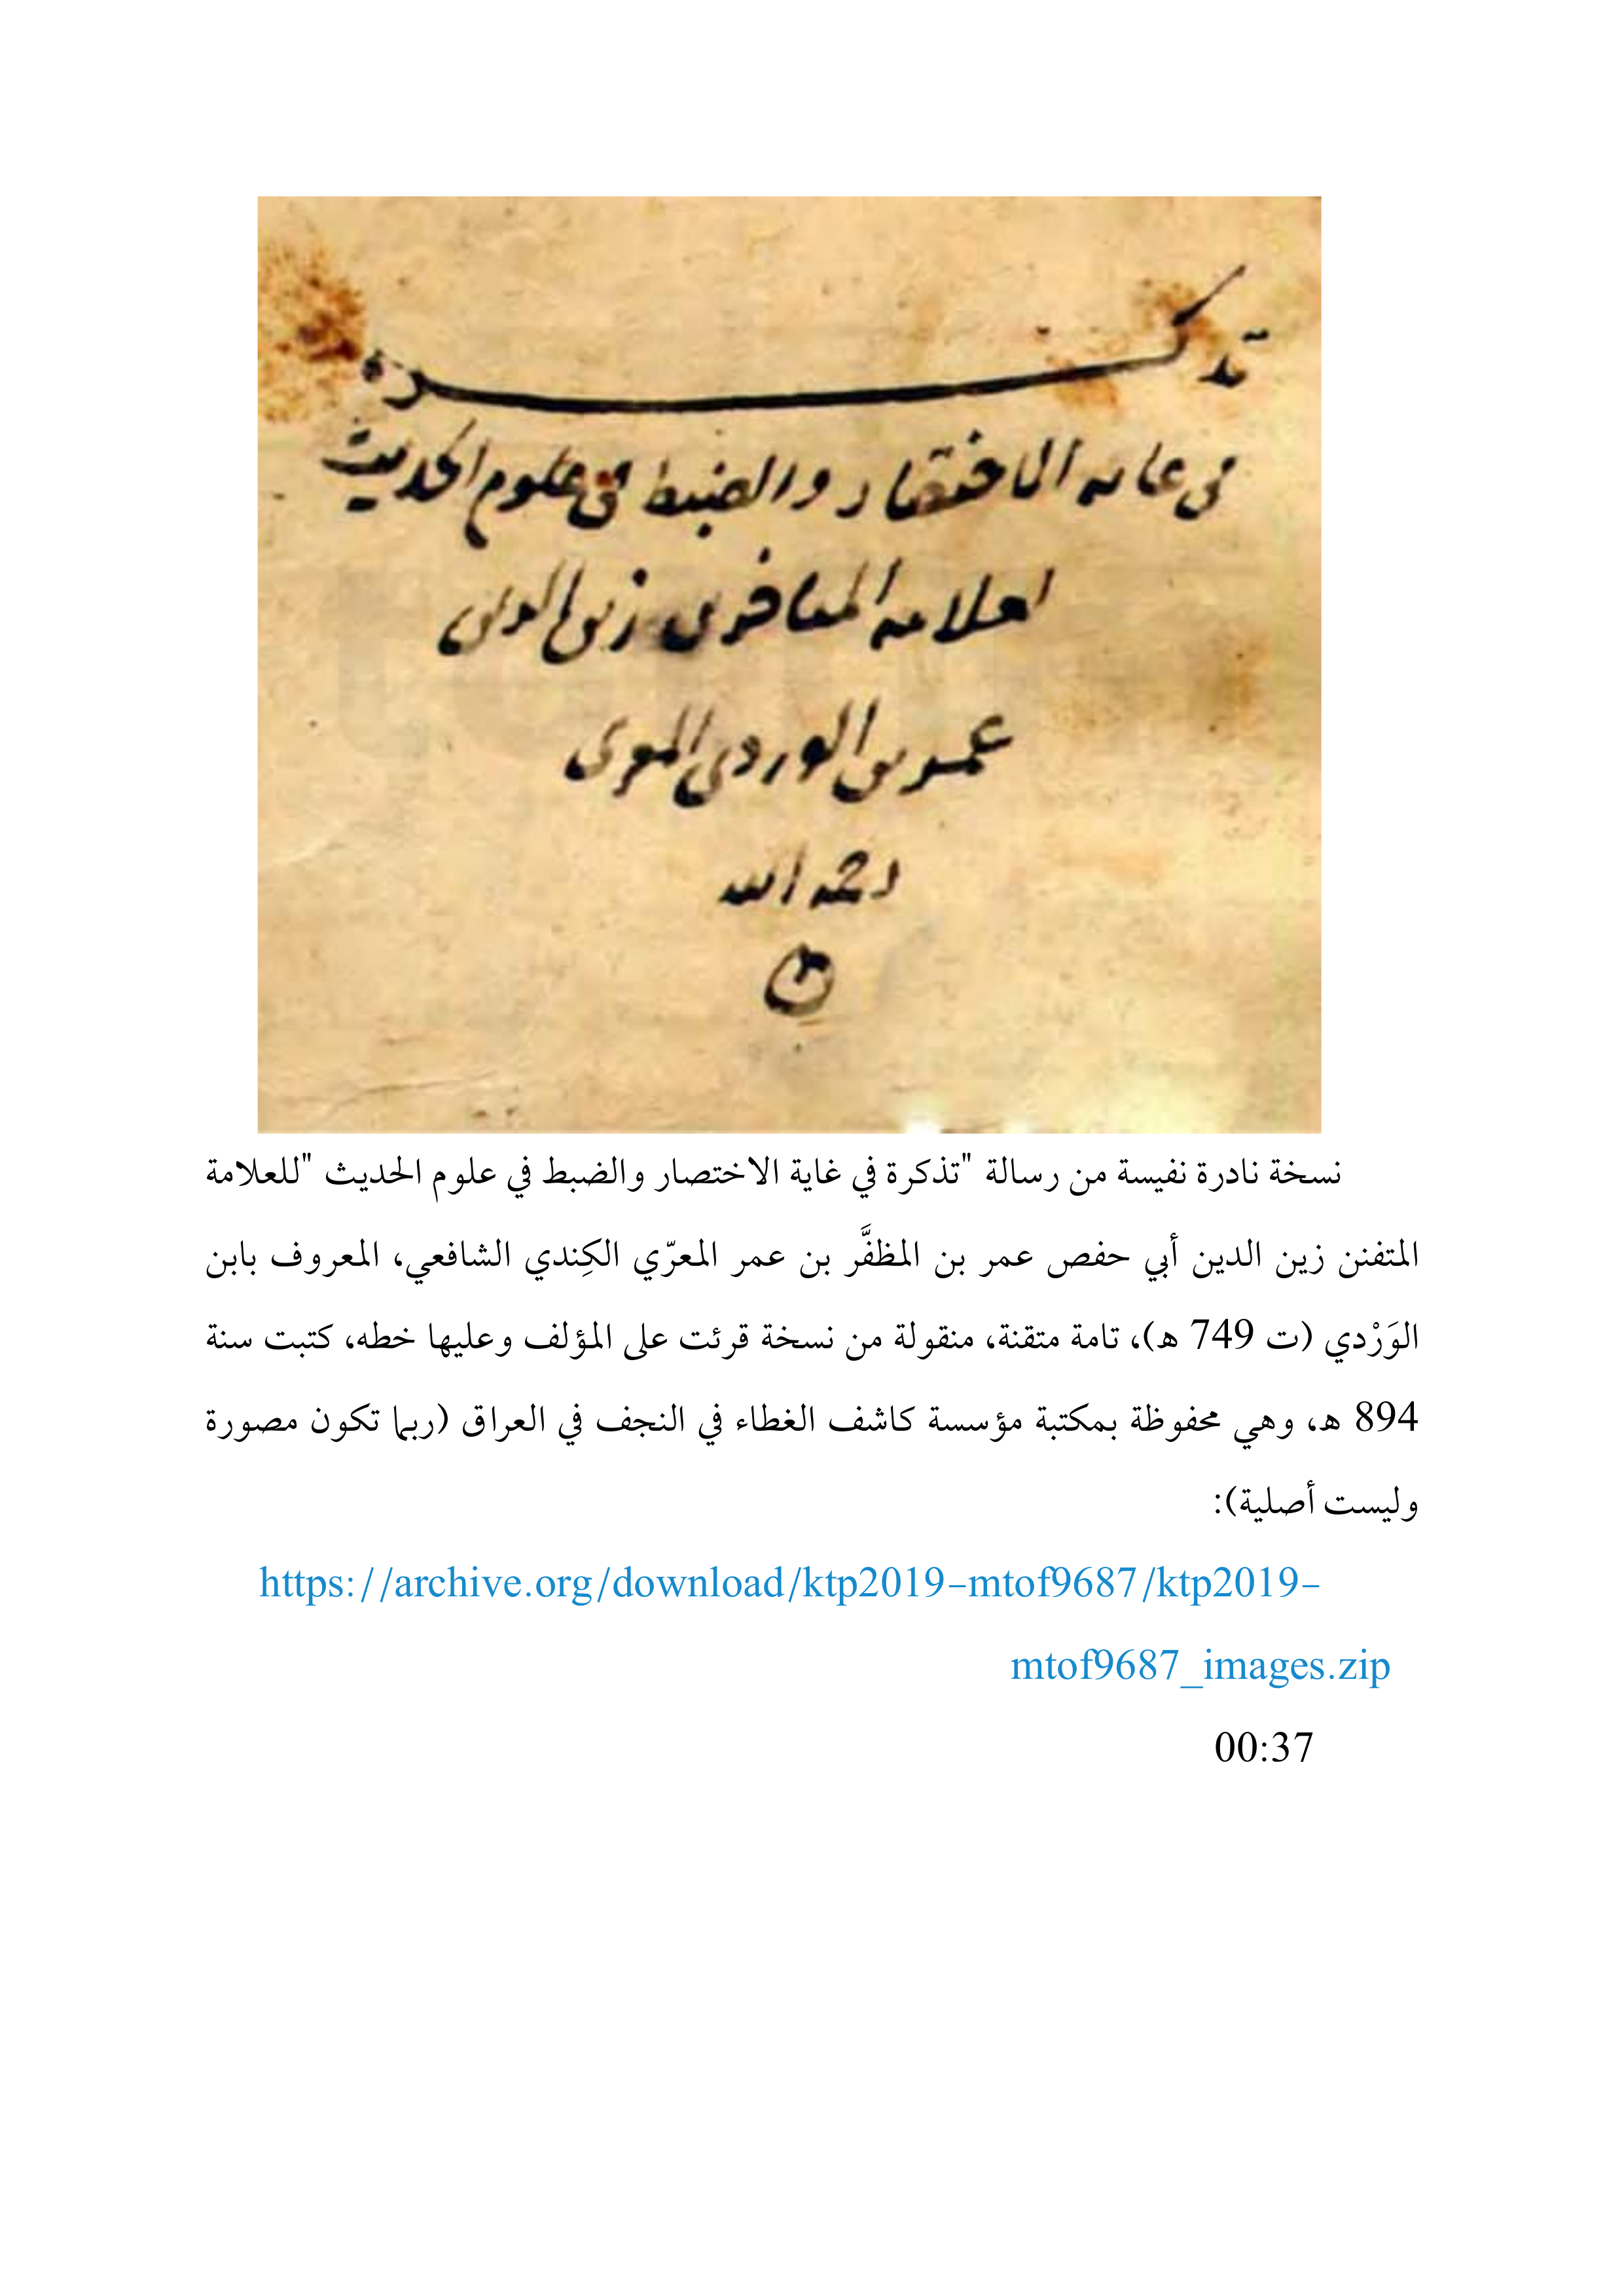 تذكره
في غايه الاختصار والضبط في علوم الحديث
زين الدين
عمر بن الوردي المعري
رحمه الله
نسخة نادرة نفيسة من رسالة "تذكرة في غاية الاختصار والضبط في علوم الحديث "للعلامة
المتفنن زين الدين أبي حفص عمر بن المظفَّر بن عمر المعرّي الكِندي الشافعي، المعروف بابن
الوَرْدي (ت 749 ه)، تامة متقنة، منقولة من نسخة قرئت على المؤلف وعليها خطه، كتبت سنة
894 ه، وهي محفوظة بمكتبة مؤسسة كاشف الغطاء في النجف في العراق (ربما تكون مصورة
وليست أصلية):
https://archive.org/download/ktp2019-mtof9687/ktp2019-
mtof9687_images.zip
00:37